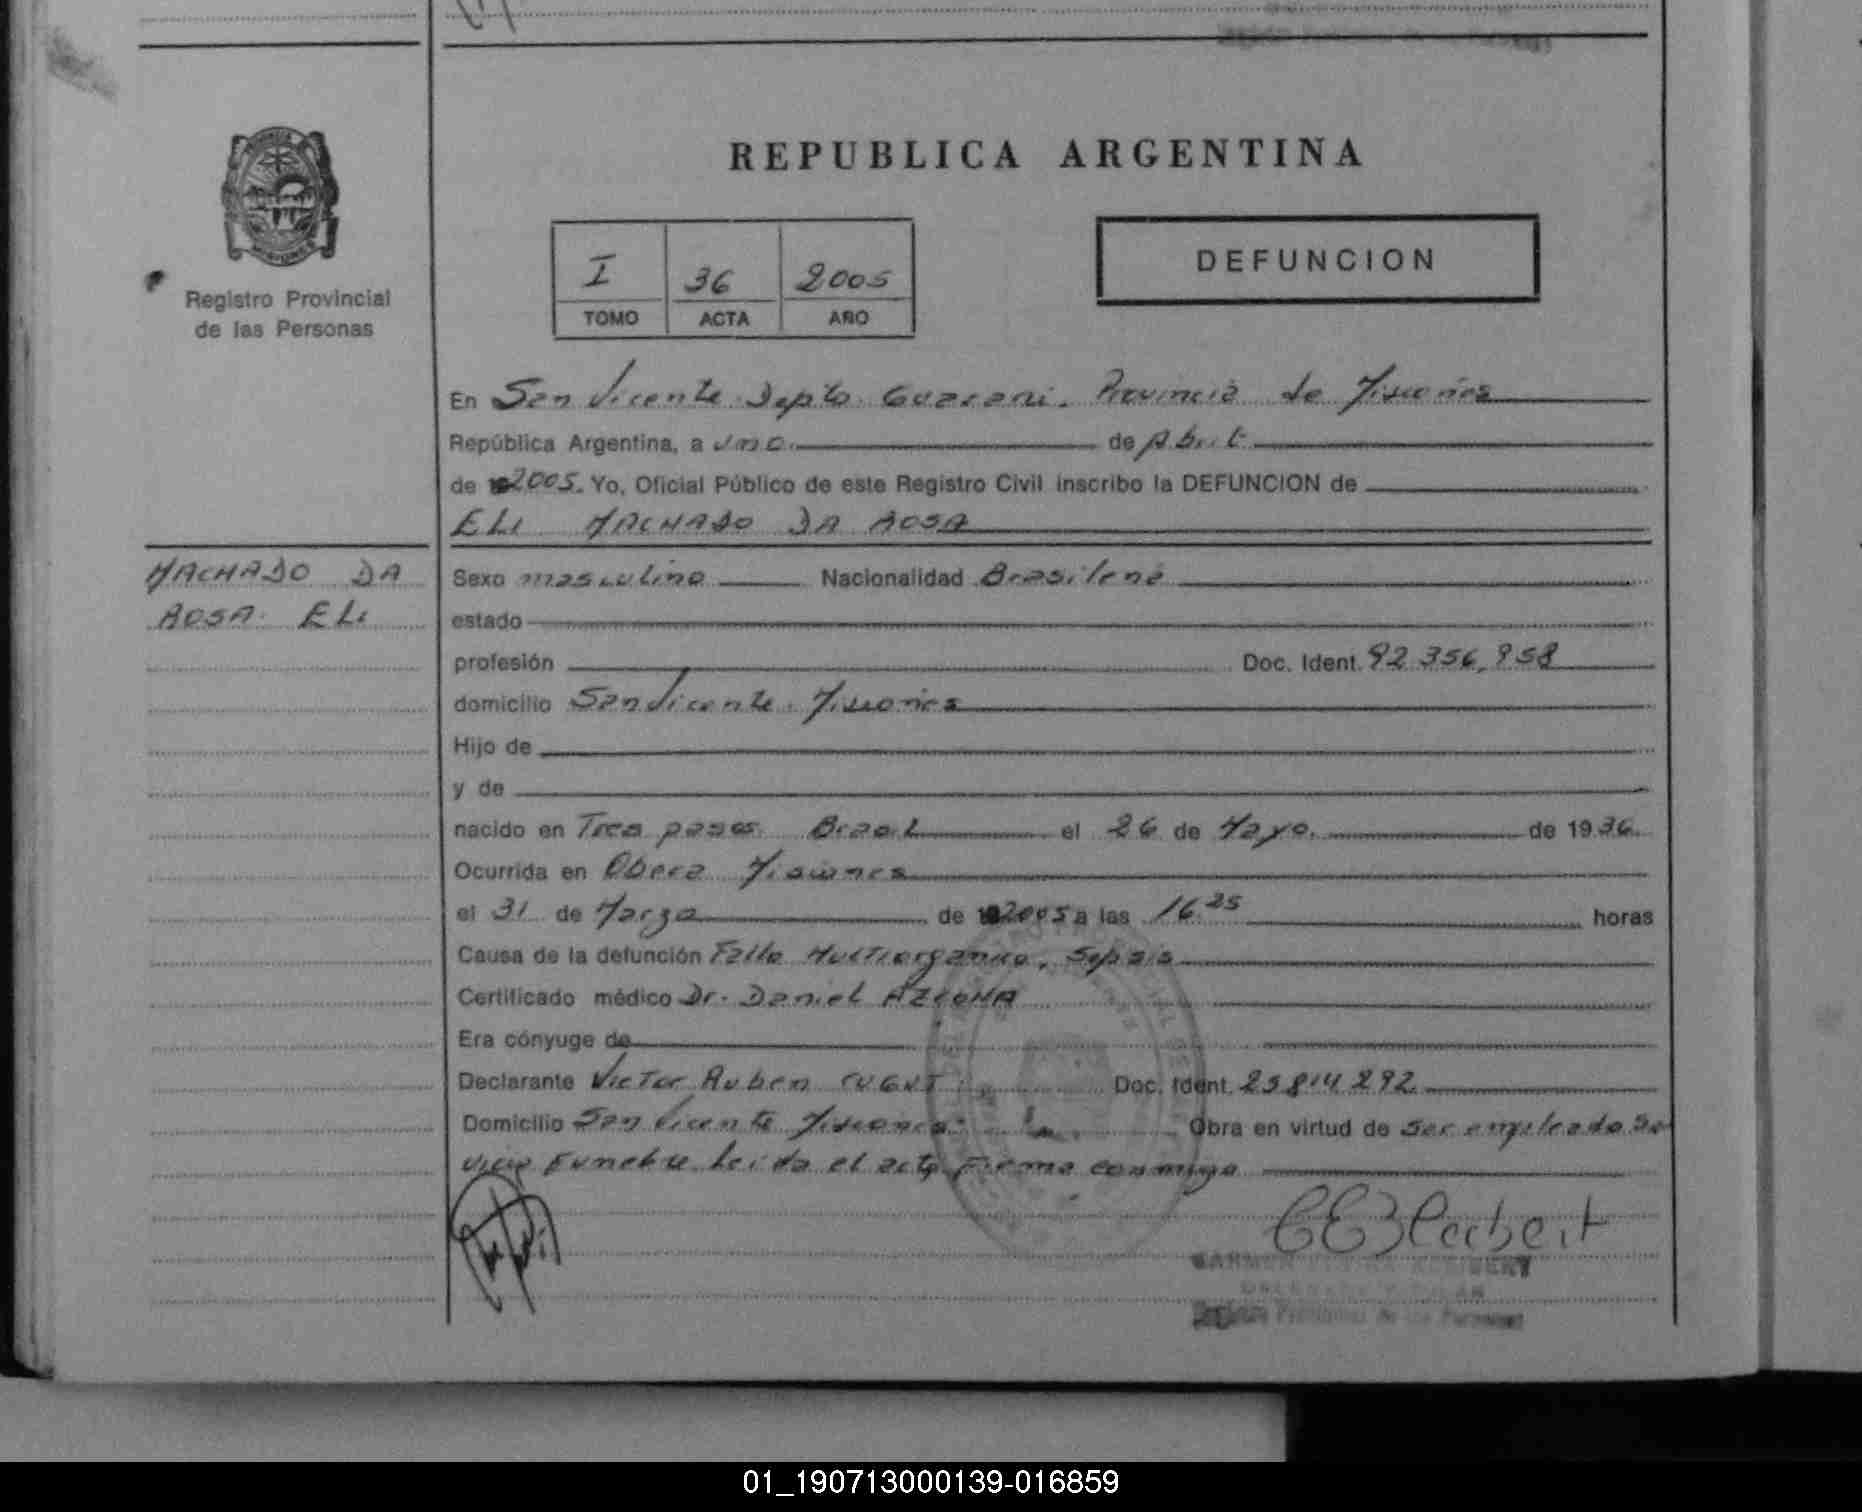 REPUBLICA ARGENTINA
Registro Provincial
de las Personas
I 36 2005
TOMO ACTA AÑO
DEFUNCION
En San Vicente Depto Guarani. Provincia de Misiones
República Argentina, a uno de Abril
de 2005. Yo, Oficial Público de este Registro Civil inscribo la DEFUNCION de
ELI MACHADO DA ROSA
MACHADO DA
ROSA ELI
Sexo masculino Nacionalidad Brasilena
estado
profesión Doc. Ident. 92 356,958
domicilio San Vicente Misiones
Hijo de
y de
nacido en Tres pasos Brasil el 26 de Mayo de 1936
Ocurrida en Obera Misiones
el 31 de Marzo de 2005 a las 16 25 horas
Causa de la defunción Falla Multiorganica, Sepsis
Certificado médico Dr. Daniel AZCONA
Era cónyuge de
Declarante Victor Ruben Doc. Ident. 25814292
Domicilio San Vicente Misiones Obra en virtud de ser empleado Se
vicio Funebre Leida el acta Firma conmigo
Registro Provincial de las Personas
01_190713000139-016859